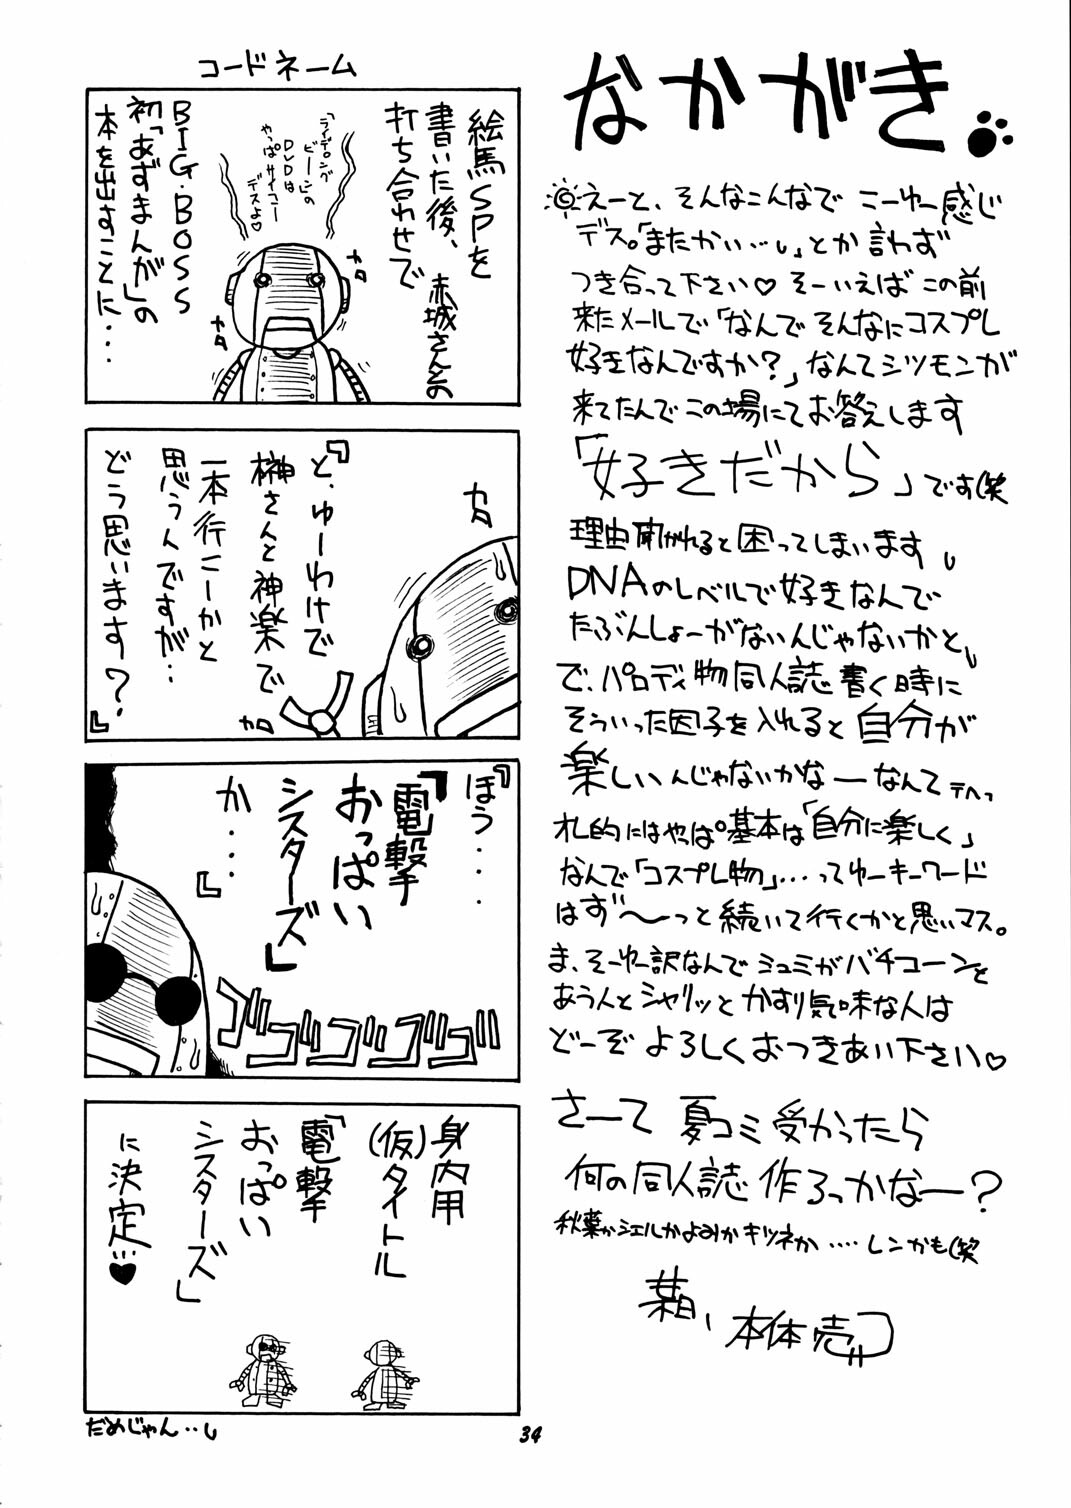 なかがき
えーと、そんなこんなで こーゆー感じ
デス。「またかい…」とか言わず
つき合って下さい♡ そーいえば この前
来たメールで「なんで そんなにコスプレ
好きなんですか?」なんてシツモンが
来てたんで この場にてお答えします
「好きだから」です(笑
理由聞かれると困ってしまいます
DNAのレベルで好きなんで
たぶんしょーがないんじゃないかと
で、パロディ物同人誌書く時に
そういった因子を入れると自分が
楽しいんじゃないかなーなんて
にはやっぱ基本は「自分に楽しく」
なんで「コスプレ物」…ってゆーキーワード
はず〜っと続いて行くかと思いマス。
ま、そーゆー訳なんでシュミがバチコーンと
あう人とシャリッとかすり気味な人は
どーぞよろしくおつきあい下さい♡
さーて 夏コミ受かったら
何の同人誌作ろっかなー?
秋葉かシエルかよみかキツネか‥‥レンかも(笑
本体売
コードネーム
絵馬SPを
書いた後、赤城さんとの
打ち合わせで
「ライデンング
ビーンの
DVDは
やっぱサイコー
デスよ♡
BIG・BOSS
初「あずまんが」の
本を出すことに・・・
カタ
カタ
『と、ゆーわけで
榊さんと神楽で
一本行こーかと
思うんですが‥
どう思います?』
カタ
カタ
『ほう・・・
『電撃
おっぱい
シスターズ』
か・・・』
ゴゴゴゴゴ
身内用
(仮)タイトル
『電撃
おっぱい
シスターズ』
に決定…♥
だめじゃん‥
34